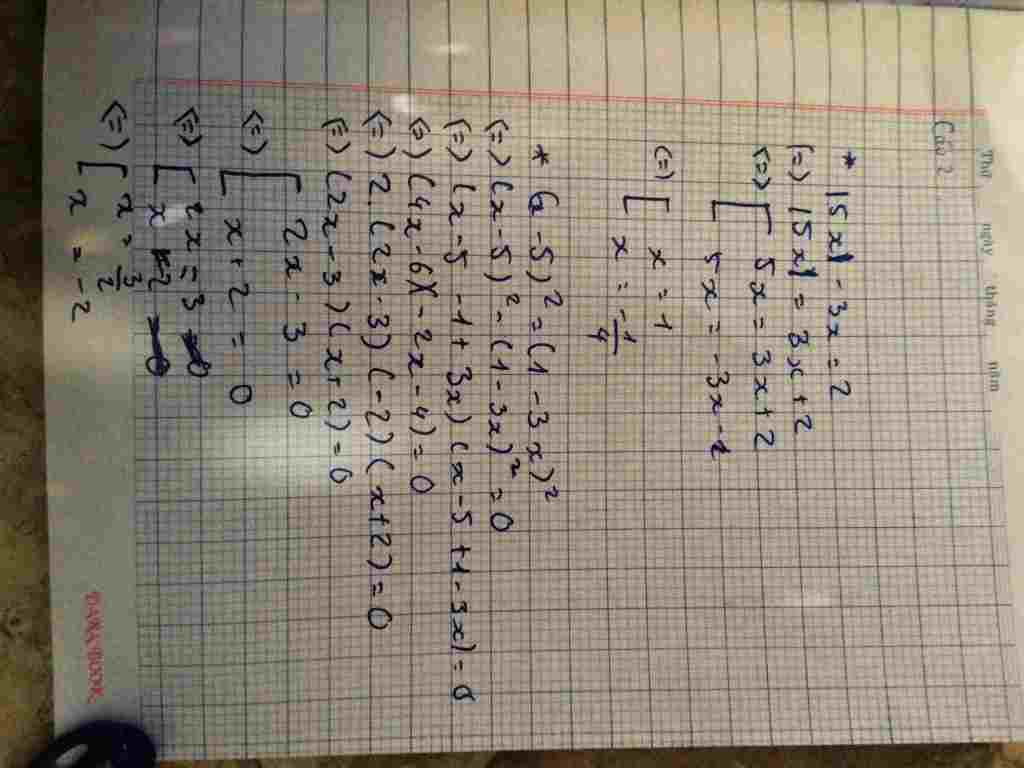 Thứ ngày tháng năm
Câu 2
* |5x| - 3x = 2
(=) |5x| = 3x + 2
(=) [ 5x = 3x + 2
5x = -3x - 2
(=) [ x = 1
x = -1/4
* (x - 5)² = (1 - 3x)²
(=) (x - 5)² - (1 - 3x)² = 0
(=) (x - 5 - 1 + 3x) (x - 5 + 1 - 3x) = 0
(=) (4x - 6)(-2x - 4) = 0
(=) 2.(2x - 3)(-2)(x + 2) = 0
(=) (2x - 3)(x + 2) = 0
(=) [ 2x - 3 = 0
x + 2 = 0
(=) [ 2x = 3
x = -2
(=) [ x = 3/2
x = -2
DARAHBOOK